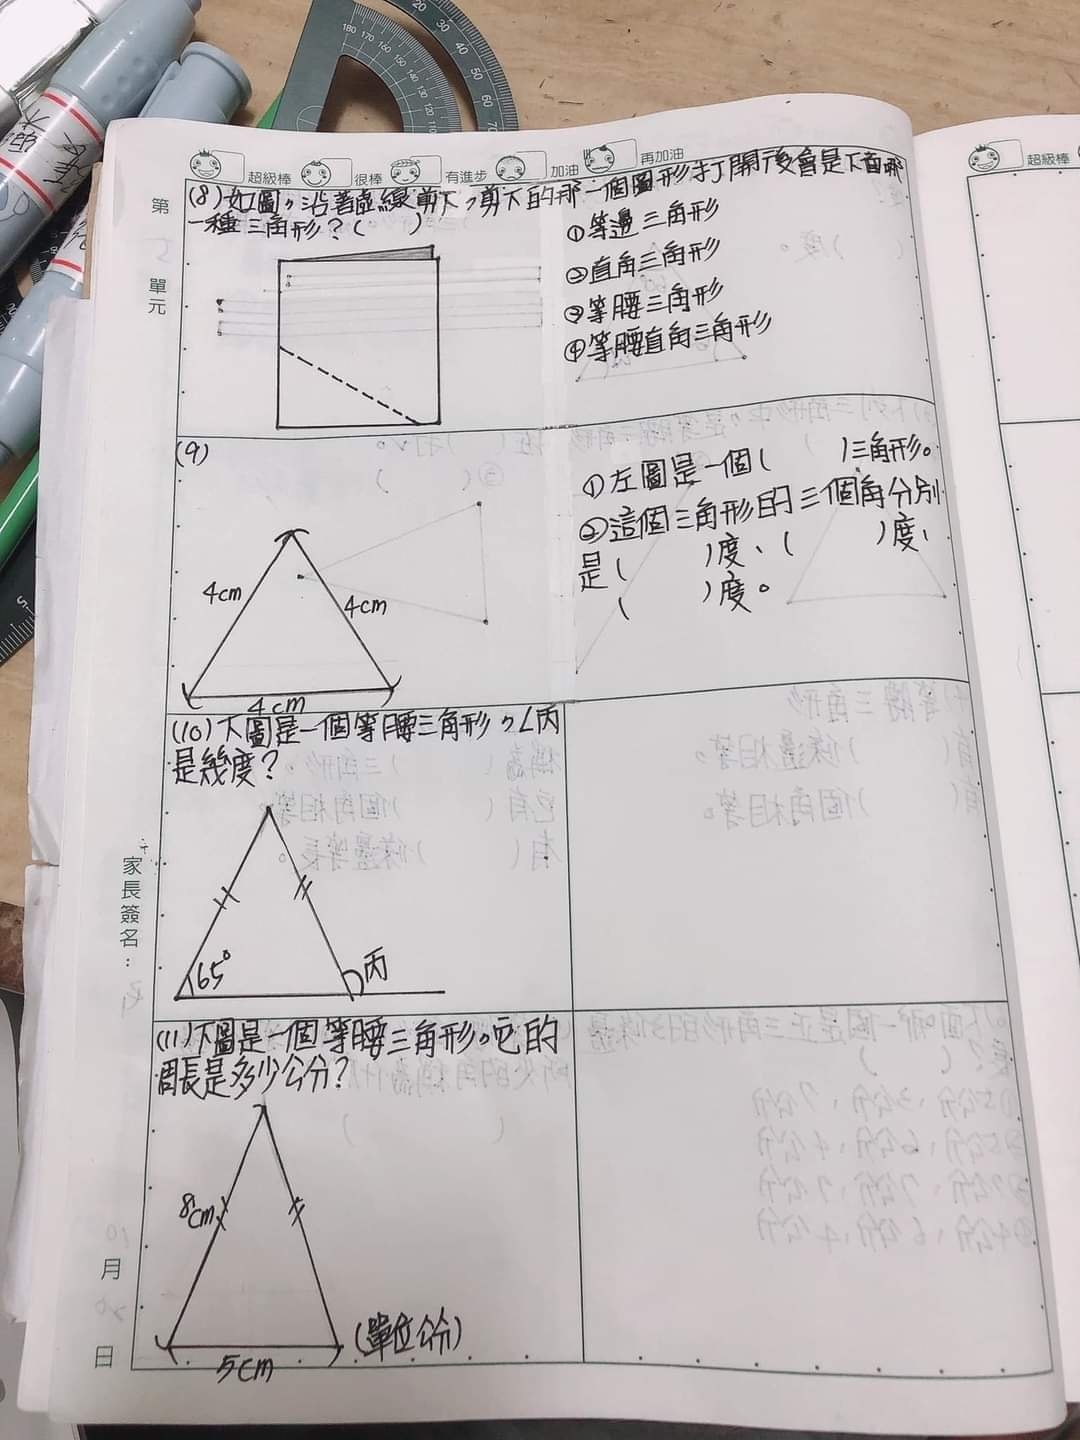 超級棒 很棒 有進步 加油 再加油
超級棒
第
單元
(8)如圖,沿著虛線剪下,剪下的那一個圖形打開後會是下面哪
一種三角形?( )
①等邊三角形
②直角三角形
③等腰三角形
④等腰直角三角形
(9)
4cm
4cm
4cm
①左圖是一個( )三角形。
②這個三角形的三個角分別
是( )度、( )度、
( )度。
(10)下圖是一個等腰三角形,∠丙
是幾度?
65°
丙
家長簽名:
(11)下圖是一個等腰三角形。它的
周長是多少公分?
8cm
5cm
(單位公分)
月
日